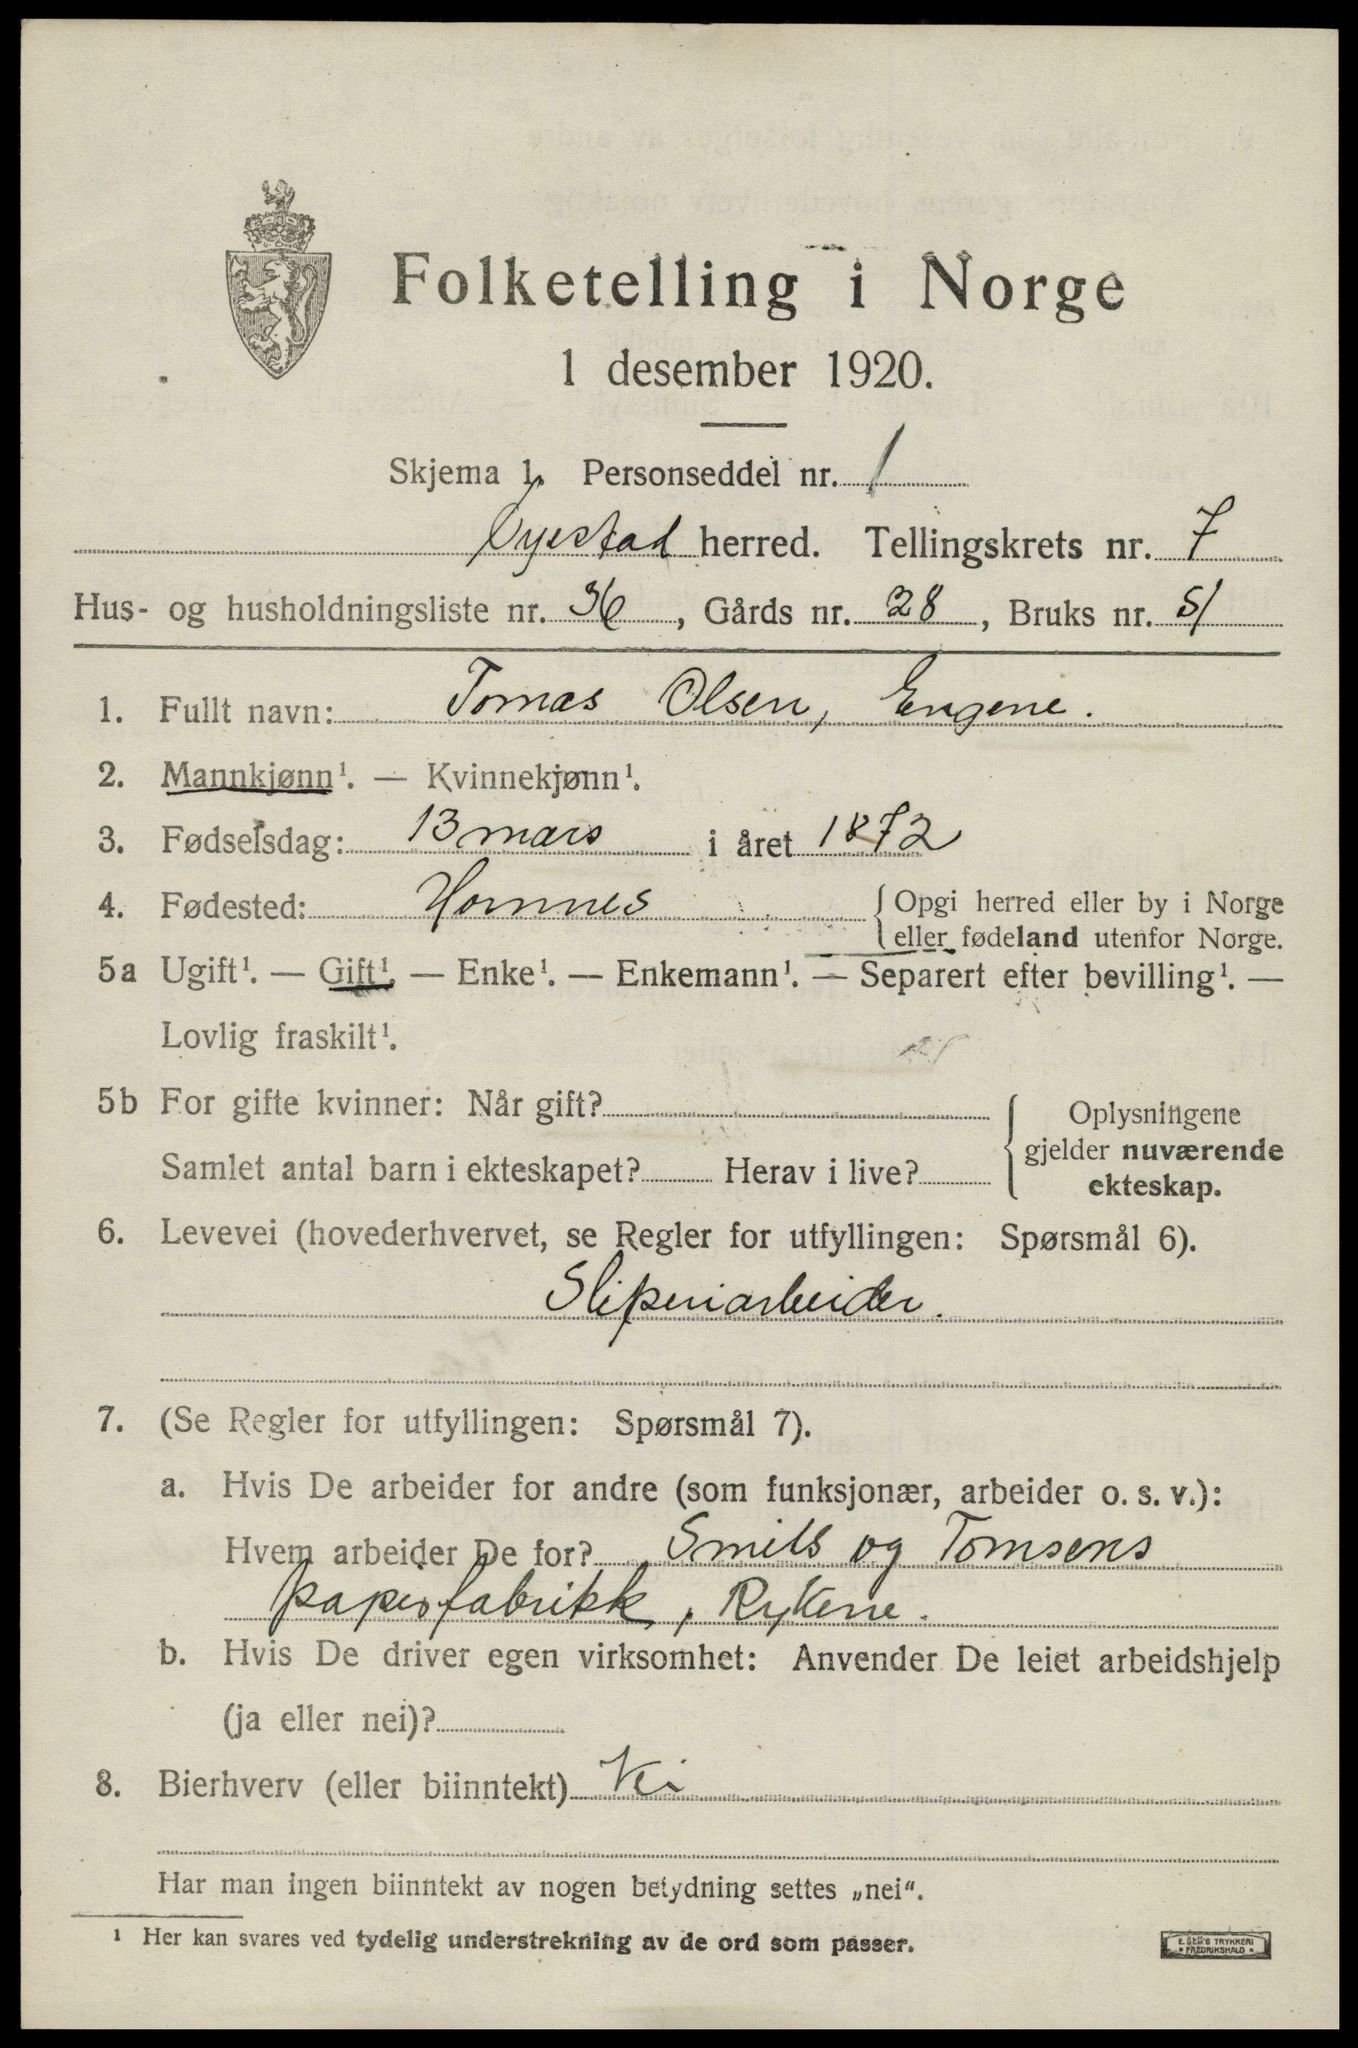 Folketelling i Norge
1 desember 1920.
Skjema 1. Personseddel nr. 1
Øyestad herred. Tellingskrets nr. 7
Hus- og husholdningsliste nr. 36, Gårds nr. 28, Bruks nr. 51
1. Fullt navn: Tomas Olsen, Engene.
2. Mannkjønn¹. — Kvinnekjønn¹.
3. Fødselsdag: 13 mars i året 1872
4. Fødested: Homnes { Opgi herred eller by i Norge
eller fødeland utenfor Norge.
5a Ugift¹. — Gift¹. — Enke¹. — Enkemann¹. — Separert efter bevilling¹. —
Lovlig fraskilt¹.
5b For gifte kvinner: Når gift?
Samlet antal barn i ekteskapet? Herav i live?
{ Oplysningene
gjelder nuværende
ekteskap.
6. Levevei (hovederhvervet, se Regler for utfyllingen: Spørsmål 6).
Sliperiarbeider.
7. (Se Regler for utfyllingen: Spørsmål 7).
a. Hvis De arbeider for andre (som funksjonær, arbeider o. s. v.):
Hvem arbeider De for? Smits og Tomsens
papirfabrikk, Rykene.
b. Hvis De driver egen virksomhet: Anvender De leiet arbeidshjelp
(ja eller nei)?
8. Bierhverv (eller biinntekt) Nei
Har man ingen biinntekt av nogen betydning settes „nei“.
¹ Her kan svares ved tydelig understrekning av de ord som passer.
E. SEM'S TRYKKERI
• FREDRIKSHALD •